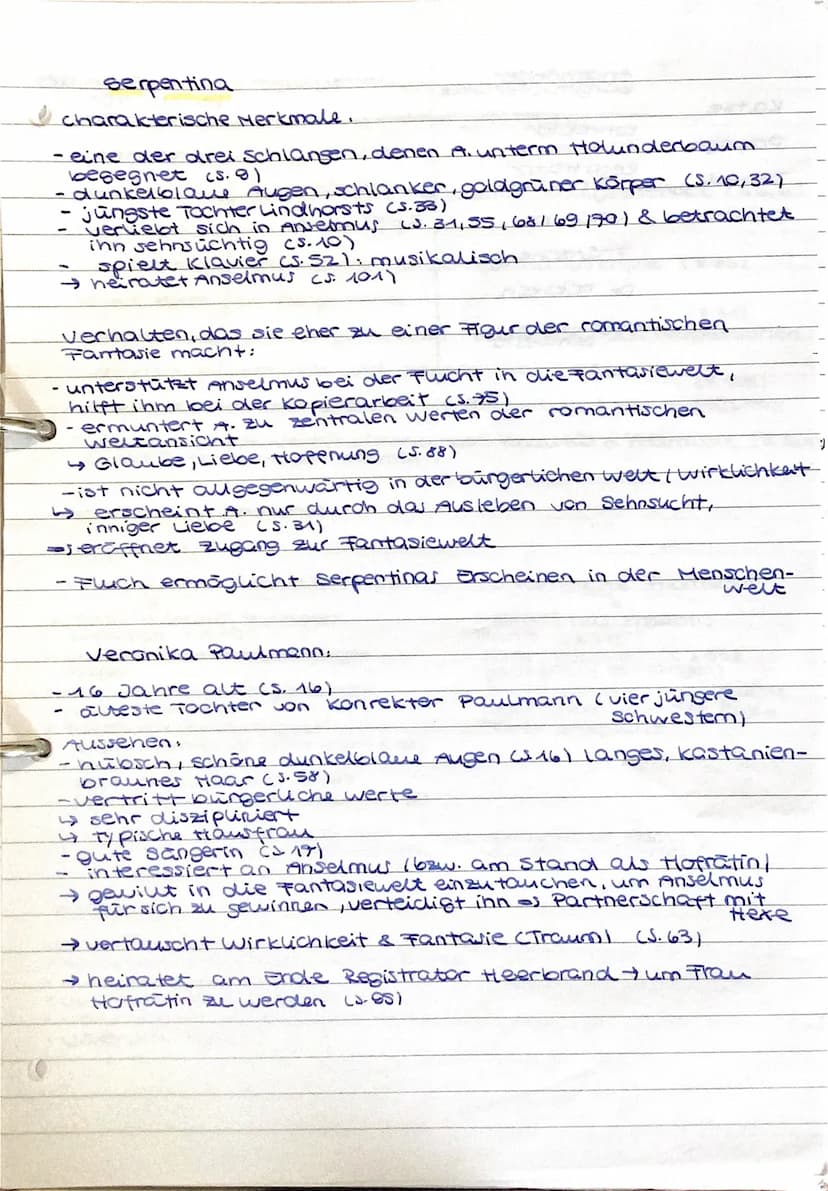 Serpentina
Charakterische Merkmale:
- eine der drei Schlangen, denen A. unterm Holunderbaum
begegnet (S. 9)
- dunkelblaue Augen, schlanker, goldgrüner Körper (S. 10, 32)
- jüngste Tochter Lindhorsts (S. 33)
- verliebt sich in Anselmus (S. 31, 55, 68/69/70) & betrachtet
ihn sehnsüchtig (S. 10)
- spielt Klavier (S. 52): musikalisch
→ heiratet Anselmus (S. 101)
Verhalten, das sie eher zu einer Figur der romantischen
Fantasie macht:
- unterstützt Anselmus bei der Flucht in die Fantasiewelt,
hilft ihm bei der Kopierarbeit (S. 75)
- ermuntert A. zu zentralen Werten der romantischen
Weltansicht
↳ Glaube, Liebe, Hoffnung (S. 88)
- ist nicht allgegenwärtig in der bürgerlichen Welt / Wirklichkeit
↳ erscheint A. nur durch das Ausleben von Sehnsucht,
inniger Liebe (S. 31)
=> eröffnet Zugang zur Fantasiewelt
- Fluch ermöglicht Serpentinas Erscheinen in der Menschen-
welt
Veronika Paulmann:
- 16 Jahre alt (S. 16)
- älteste Tochter von Konrektor Paulmann (vier jüngere
Schwestern)
Aussehen:
- hübsch, schöne dunkelblaue Augen (S. 16) langes, kastanien-
braunes Haar (S. 58)
- vertritt bürgerliche Werte
↳ sehr diszipliniert
↳ typische Hausfrau
- gute Sängerin (S. 17)
- interessiert an Anselmus (bzw. am Stand als Hofrätin)
→ gewillt in die Fantasiewelt einzutauchen, um Anselmus
für sich zu gewinnen, verteidigt ihn => Partnerschaft mit
Hexe
→ vertauscht Wirklichkeit & Fantasie (Traum) (S. 63)
→ heiratet am Ende Registrator Heerbrand → um Frau
Hofrätin zu werden (S. 95)